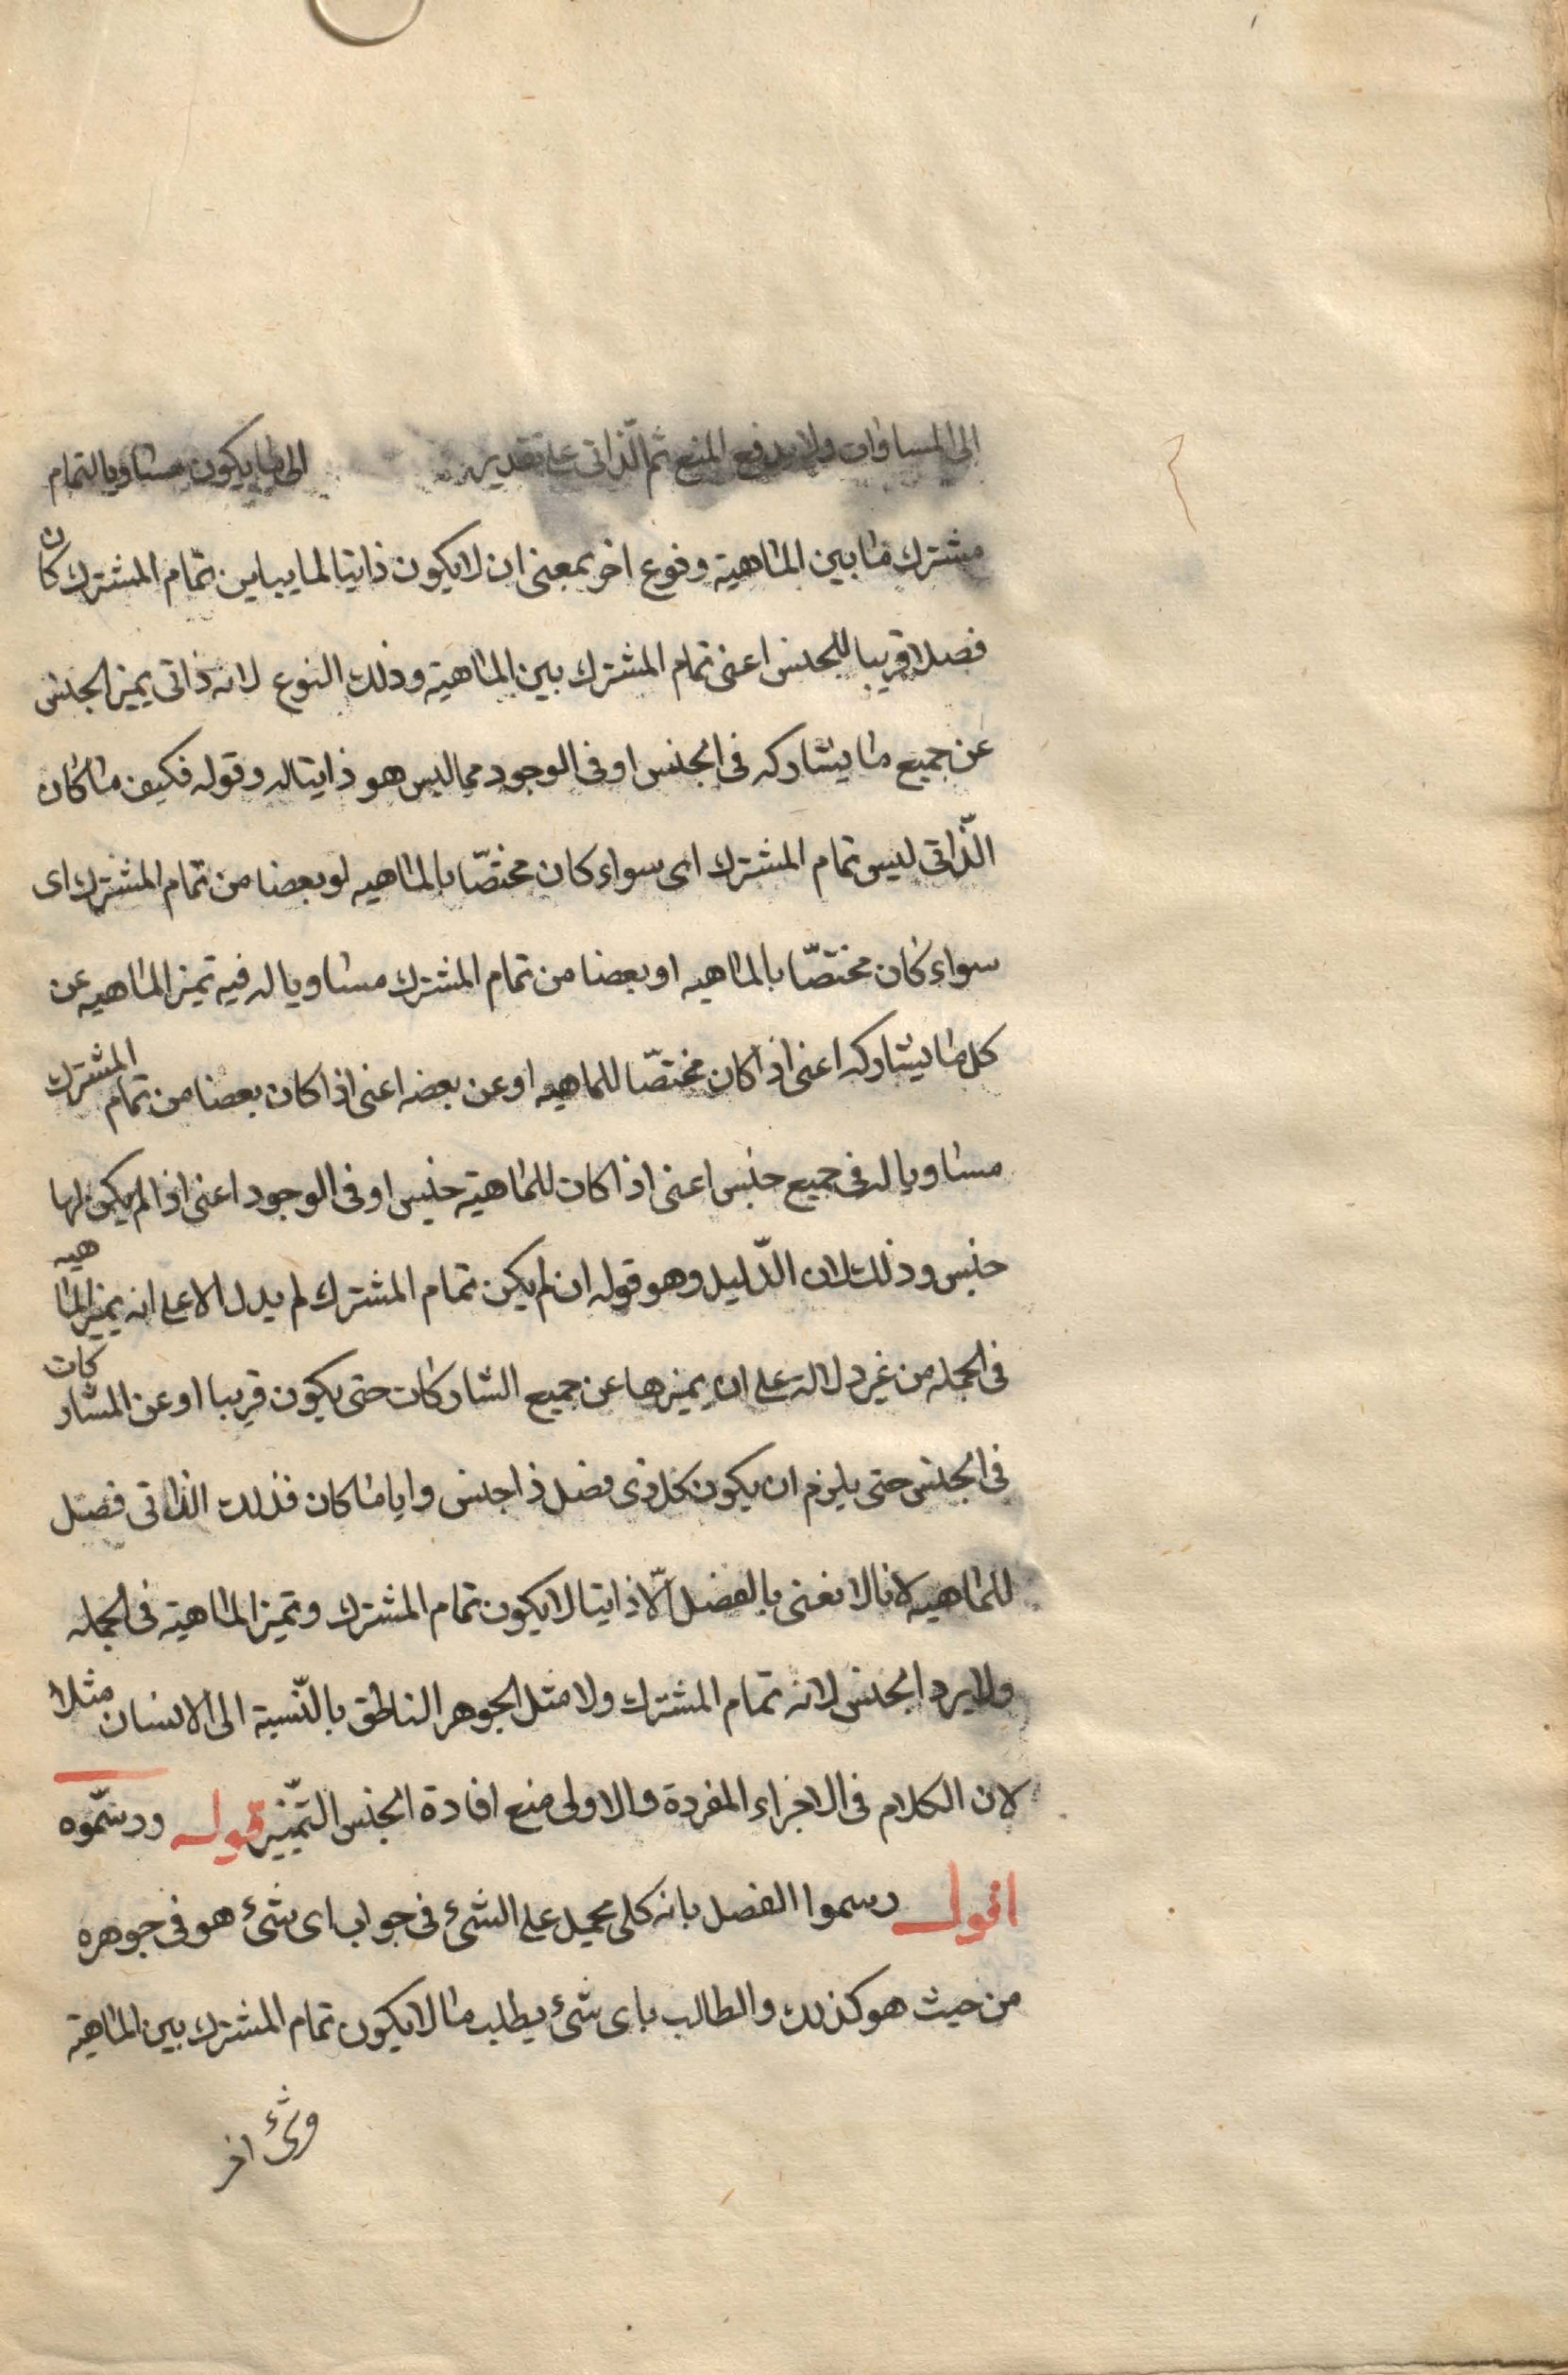 الى المساوات ولا يدفع المنع ثم الذاتى على تقدير الى ما يكون مساويا لتمام
مشترك ما بين الماهية ونوع اخر بمعنى ان لا يكون ذاتيا لما يباين تمام المشترك كان
فصلا قريبا للجنس اعنى تمام المشترك بين الماهية وذلك النوع لانه ذاتى يميز الجنس
عن جميع ما يشاركه فى الجنس او فى الوجود مما ليس هو ذاتيا له وقوله فكيف ما كان
الذّاتى ليس تمام المشترك اى سواء كان مختصّا بالماهيه او بعضا من تمام المشترك اى
سواء كان مختصّا بالماهيه او بعضا من تمام المشترك مساويا له فيه تميز الماهيه عن
كل ما يشاركه اعنى اذا كان مختصّا للماهيه او عن بعضه اعنى اذا كان بعضا من تمام المشترك
مساويا له فى جميع جنس اعنى اذا كان للماهية جنس او فى الوجود اعنى اذا لم يكن لها
جنس وذلك لان الدّليل وهو قوله ان لم يكن تمام المشترك لم يدل الا على انه يميز الماهيه
فى الجمله من غير دلالة على ان يميزها عن جميع الشاركات حتى يكون قريبا او عن المشاركات
فى الجنس حتى يلزم ان يكون كل ذى فصل ذا جنس وايا ما كان فذلك الذاتى فصل
للماهيه لانا لا نعنى بالفصل الّا ذاتيا لا يكون تمام المشترك وتميز الماهية فى الجمله
ولا يرد الجنس لانه تمام المشترك ولا مثل الجوهر الناطق بالنّسبة الى الانسان مثلا
لان الكلام فى الاجزاء المفردة والاولى منع افادة الجنس التّمييز قوله ورسّموه
اقول رسموا الفصل بانه كلى يحمل على الشئ فى جواب اى شئ هو فى جوهره
من حيث هو كذلك والطالب باى شئ يطلب ما لا يكون تمام المشترك بين الماهية
وشئ اخر